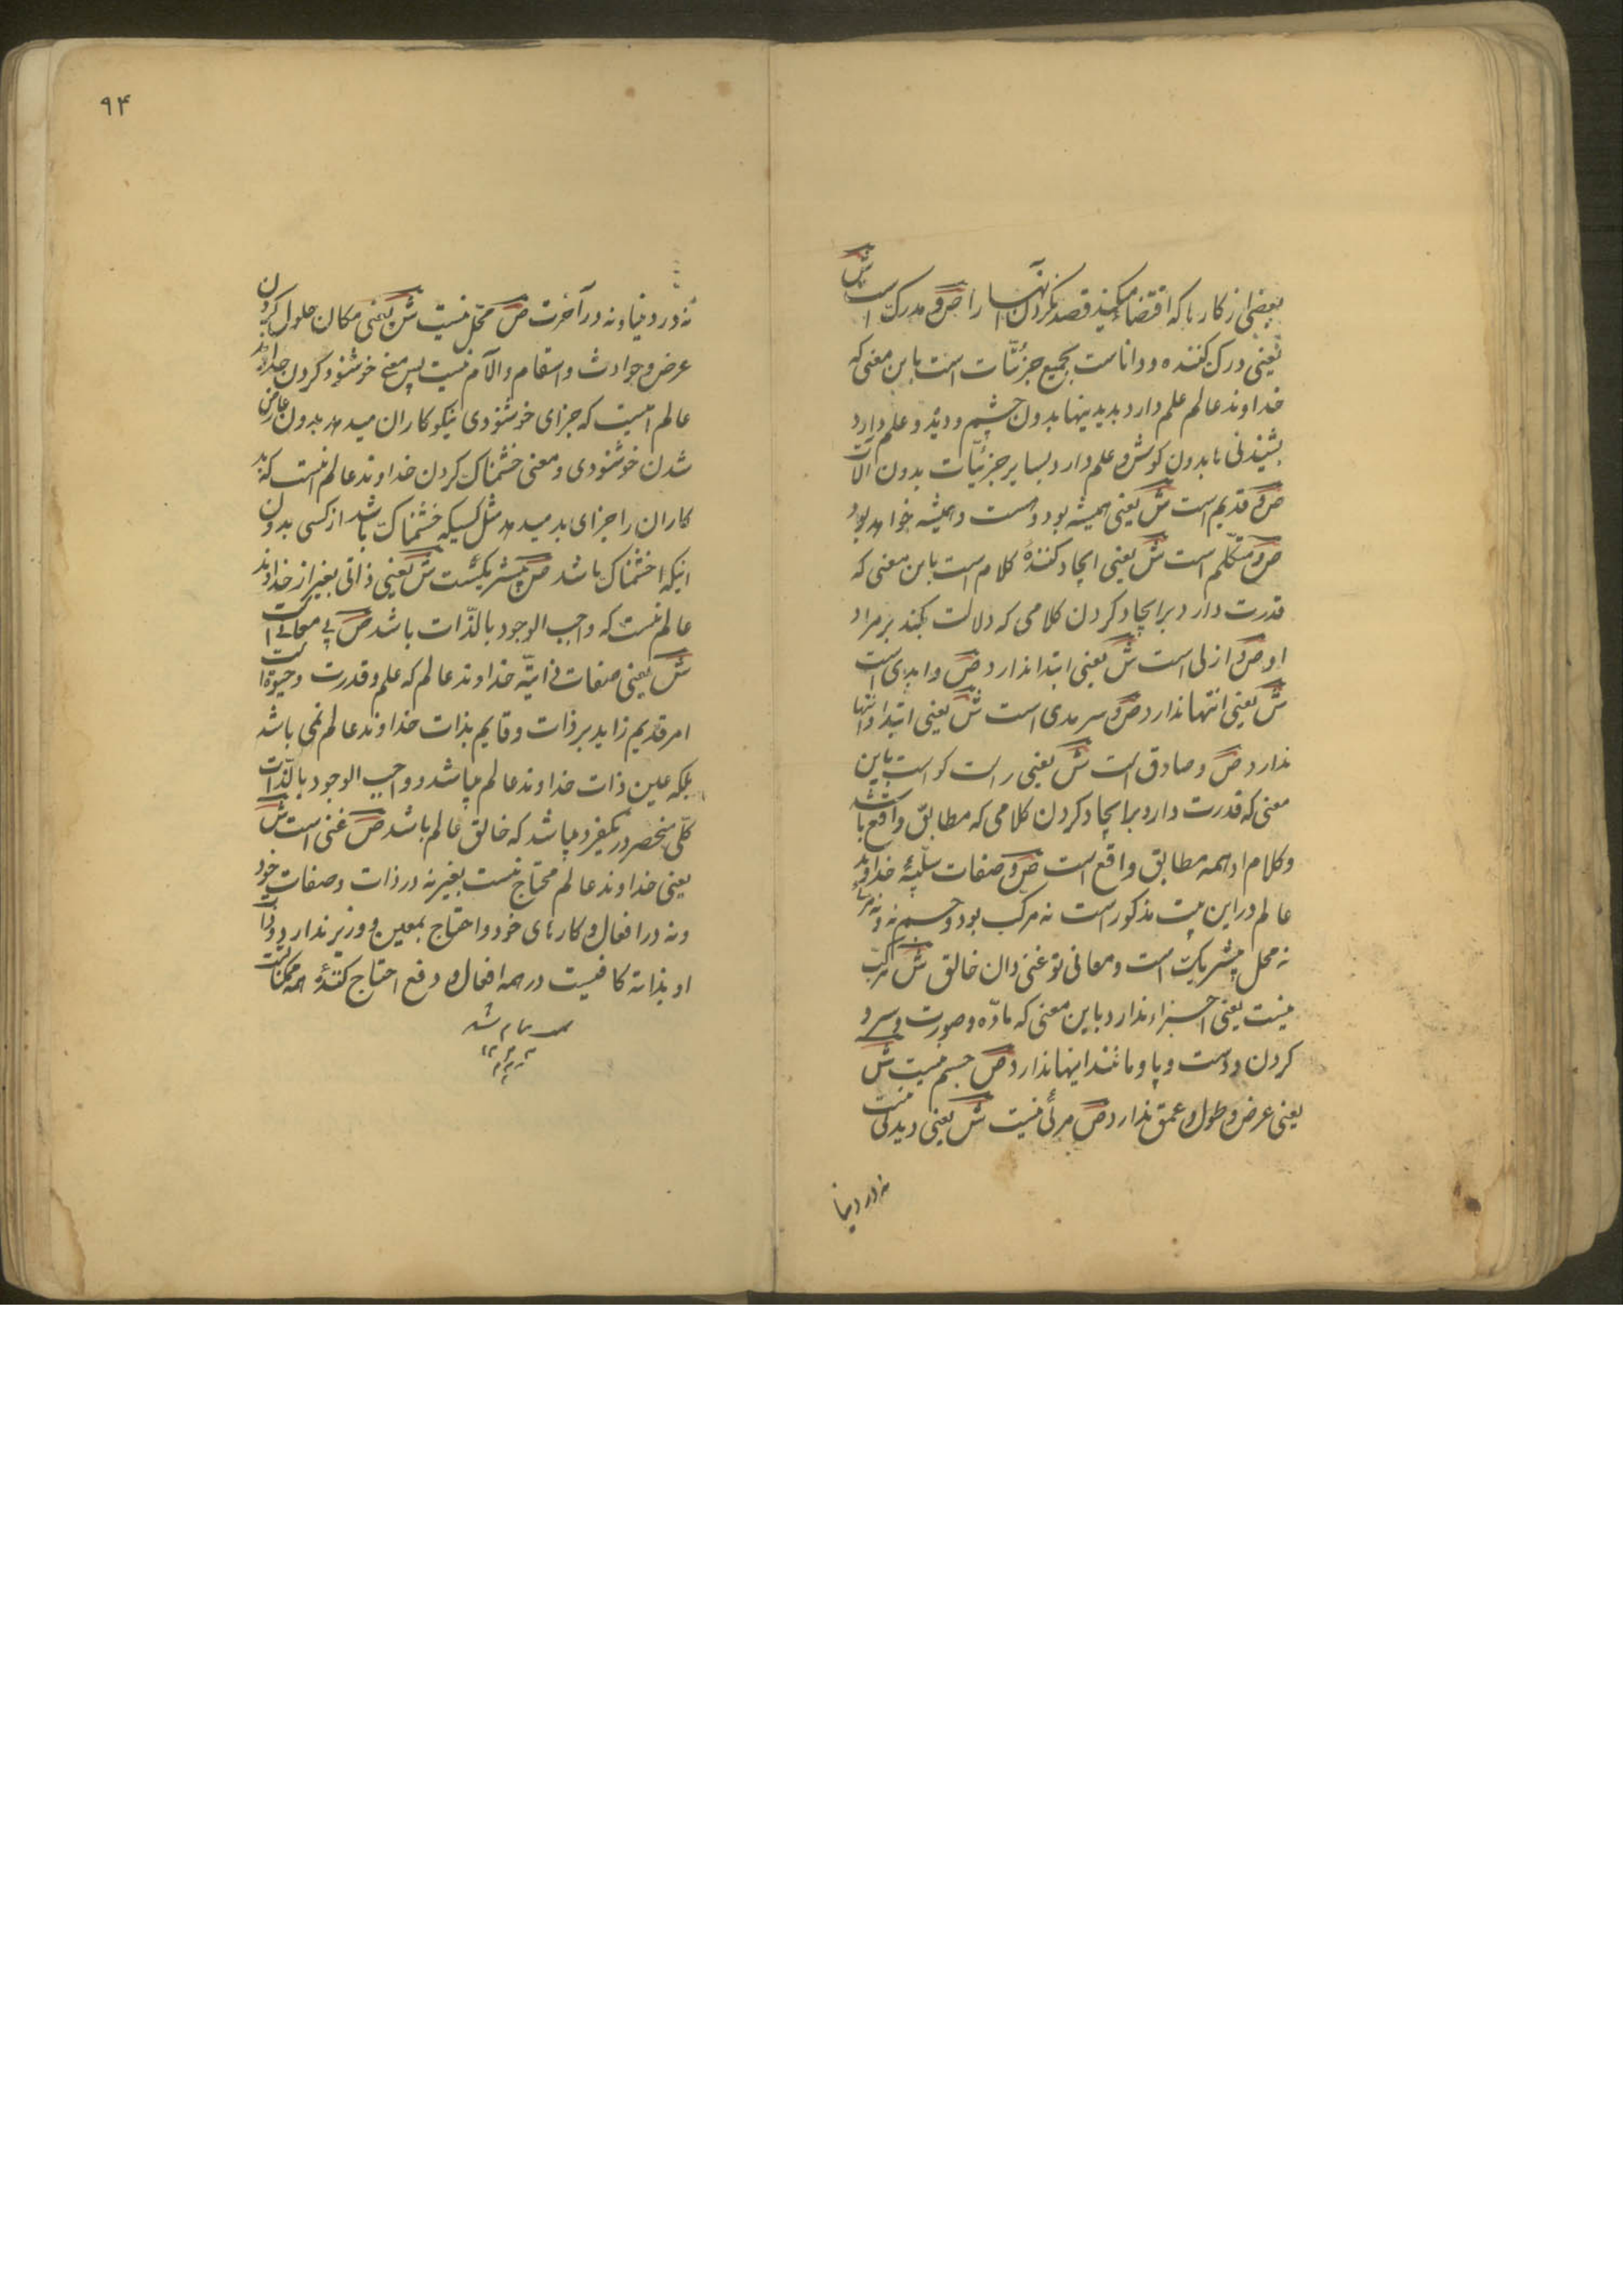 بعضی از کارها که اقتضا میکند قصد نکردن آنها را ص و مدرک است ش
یعنی درک کننده و داناست بجمیع جزئیات است باین معنی که
خداوند عالم علم دارد بدیدینها بدون چشم و دیده و علم دارد
بشنیدنی ها بدون کوش و علم دارد بسایر جزئیات بدون آلات
ص و قدیم است ش یعنی همیشه بود و هست و همیشه خواهد بود
ص و متکلم است ش یعنی ایجاد کنندهٔ کلام است باین معنی که
قدرت دارد بر ایجاد کردن کلامی که دلالت بکند بر مراد
او ص و ازلی است ش یعنی ابتدا ندارد ص و ابدی است
ش یعنی انتها ندارد ص و سرمدی است ش یعنی ابتدا و انتها
ندارد ص و صادق است ش یعنی راست کو است باین
معنی که قدرت دارد بر ایجاد کردن کلامی که مطابق واقع باشد
و کلام او همه مطابق واقع است ص و صفات سلبیهٔ خداوند
عالم در این بیت مذکور است نه مرکب بود و جسم نه و نه مرئی
نه محل بیشریک است و معانی تو غنی دان خالق ش مرکب
نیست یعنی اجزاء ندارد باین معنی که مادّه و صورت و سر و
کردن و دست و پا و مانند اینها ندارد ص جسم نیست ش
یعنی عرض و طول و عمق ندارد ص مرئی نیست ش یعنی دیدنی نیست
نه در دنیا
۹۴
نه در دنیا و نه در آخرت ص محل نیست ش یعنی مکان حلول کردن
عرض و حوادث و اسقام و آلام نیست پس معنی خوشنود کردن خداوند
عالم اینست که جزای خوشنودی نیکو کاران میدهد بدون عارض
شدن خوشنودی و معنی خشمناک کردن خداوند عالم اینست که بد
کاران را جزای بد میدهد مثل کسیکه خشمناک باشد از کسی بدون
اینکه خشمناک باشد ص بیشریکست ش یعنی ذاتی بغیر از خداوند
عالم نیست که واجب الوجود بالذّات باشد ص بی معانی است
ش یعنی صفات ذاتیّه خداوند عالم که علم و قدرت و حیوة است
امر قدیم زاید بر ذات و قایم بذات خداوند عالم نمی باشد
بلکه عین ذات خداوند عالم میباشد و واجب الوجود بالذّات
کلّی منحصر در یکفرد میباشد که خالق عالم باشد ص غنی است ش
یعنی خداوند عالم محتاج نیست بغیر نه در ذات و صفات خود
و نه در افعال و کارهای خود و احتاج بمعین و وزیر ندارد و ذات
او بذاته کافیست در همه افعال و دفع احتاج کنندهٔ همه ممکنات است
تمام شد